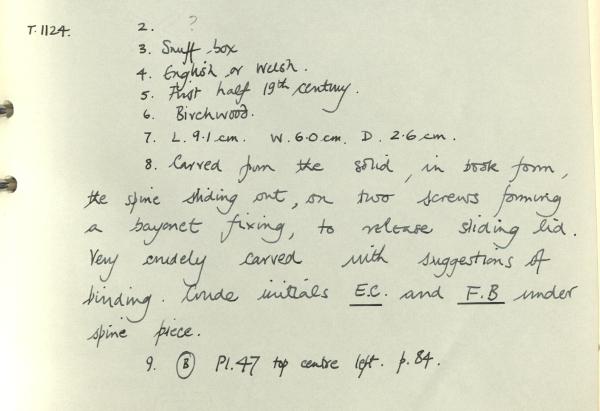 T.1124. 2. ?
3. Snuff box
4. English or Welsh.
5. First half 19th century.
6. Birchwood.
7. L. 9.1 cm. W. 6.0 cm. D. 2.6 cm.
8. Carved from the solid, in book form,
the spine sliding out, on two screws forming
a bayonet fixing, to release sliding lid.
Very crudely carved with suggestions of
binding. Crude initials E.C. and F.B under
spine piece.
9. B Pl. 47 top centre left. p. 84.